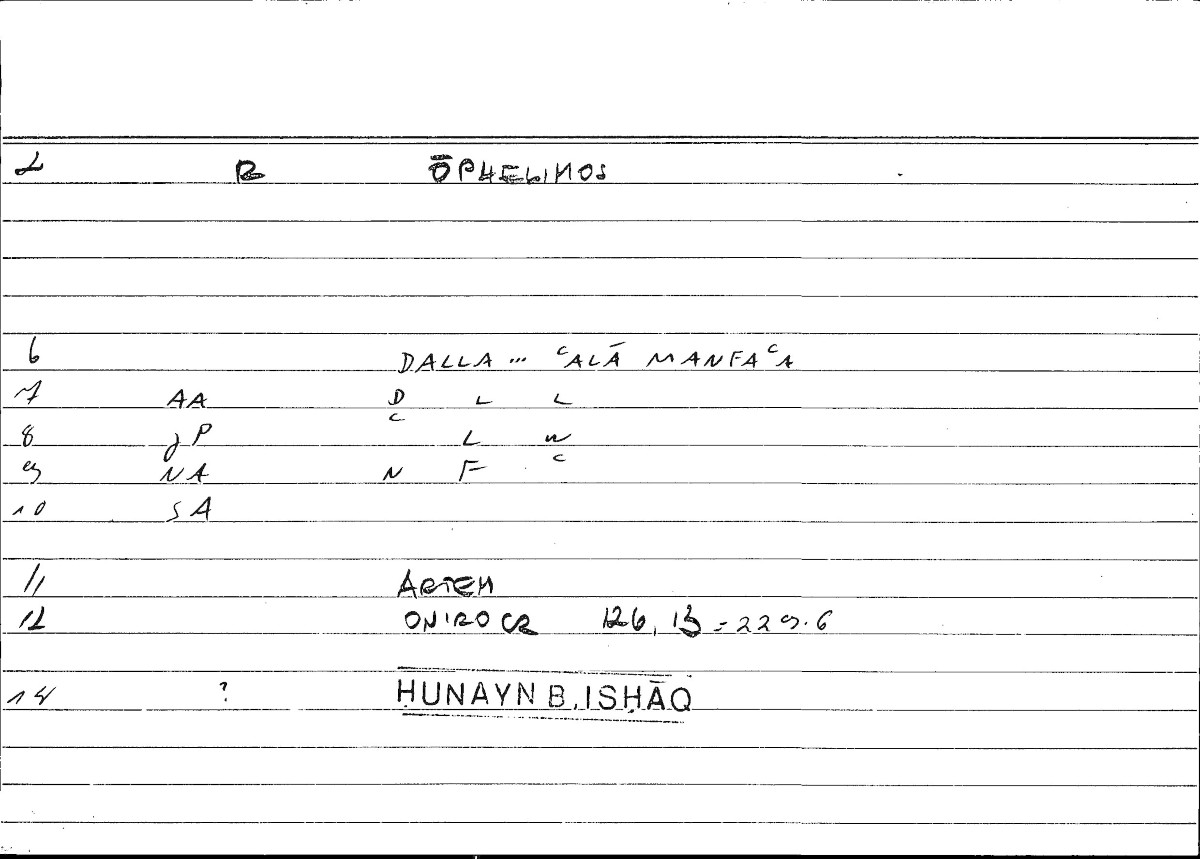 2 R ŌPHELIMOS
6 DALLA ... ᶜALĀ MANFAᶜA
7 AA D L L
8 JP C L W
9 NA N F C
10 SA
11 ARTEM
12 ONIROCR 126, 13 = 229.6
14 ? ḤUNAYN B. ISḤĀQ